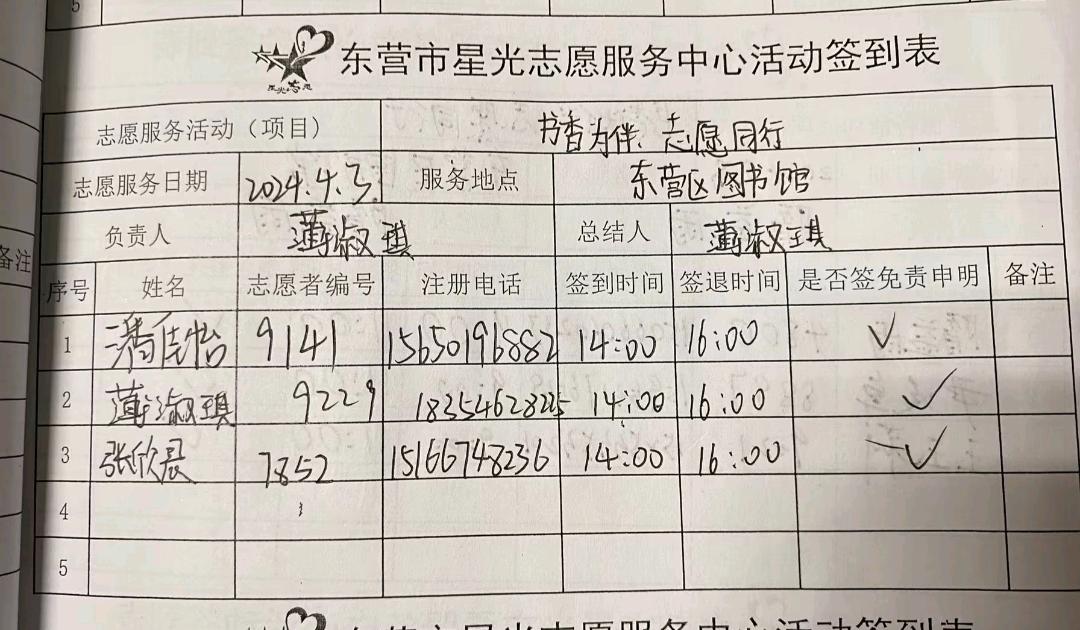 5
东营市星光志愿服务中心活动签到表
星光志愿
志愿服务活动（项目） 书香为伴 志愿同行
志愿服务日期 2024.4.3. 服务地点 东营区图书馆
负责人 薄淑琪 总结人 薄淑琪
备注
序号 姓名 志愿者编号 注册电话 签到时间 签退时间 是否签免责申明 备注
1 潘佳怡 9141 15650196882 14:00 16:00 √
2 薄淑琪 9229 18354628225 14:00 16:00 √
3 张欣晨 7852 15166748236 14:00 16:00 √
4
5
东营市星光志愿服务中心活动签到表